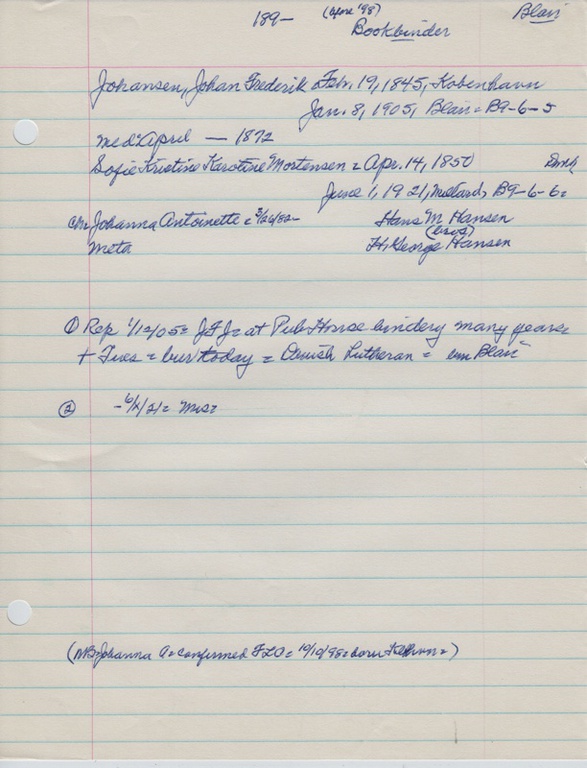 189- (before '98) Blair
Bookbinder
Johansen, Johan Frederik = Feb. 19, 1845, Kobenhavn
Jan. 8, 1905, Blair = B9-6-5
med = April — 1872
Sofie Kristine Karoline Mortensen = Apr. 14, 1850 Dmk
June 1, 1921, Millard, B9-6-6=
Johanna Antoinette = 3/26/82- Hans M. Hansen
(bros)
Meta H. George Hansen
① Rep 1/12/05 = JFJ = at Pub House bindery many years
+ Tues = bur today = Danish Lutheran = em Blair
② -6/ /21 = Mrs =
(NB = Johanna A = confirmed FLO = 10/10/98 = born Kbhvn = )